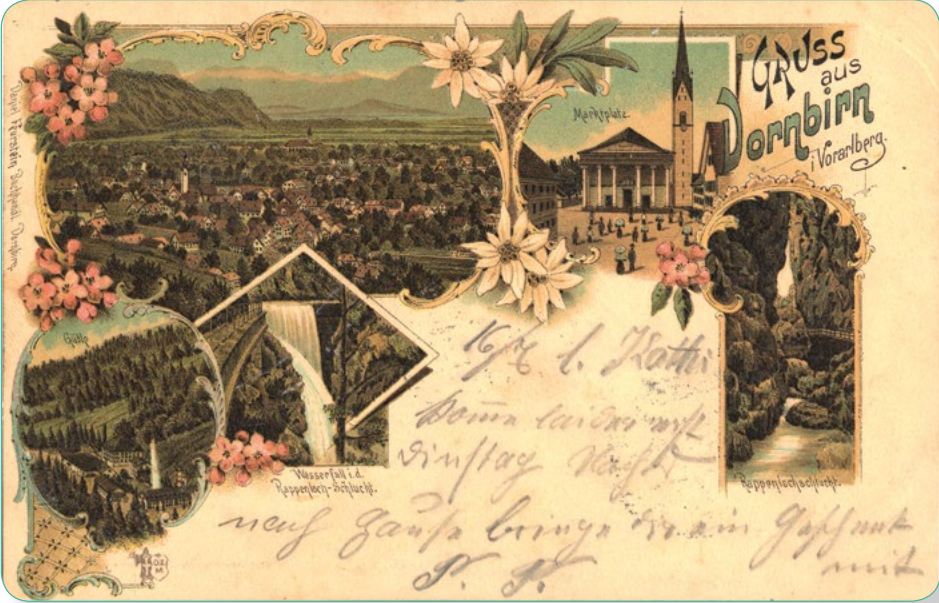 Gruss
aus
Dornbirn
i/Vorarlberg.
Marktplatz.
Gütle
Wasserfall i. d.
Rappenloch-Schlucht.
Rappenlochschlucht.
16/7 l. Kathi
komme leider erst
Dinstag
nach Hause bringe dir ein Geschenk
mit